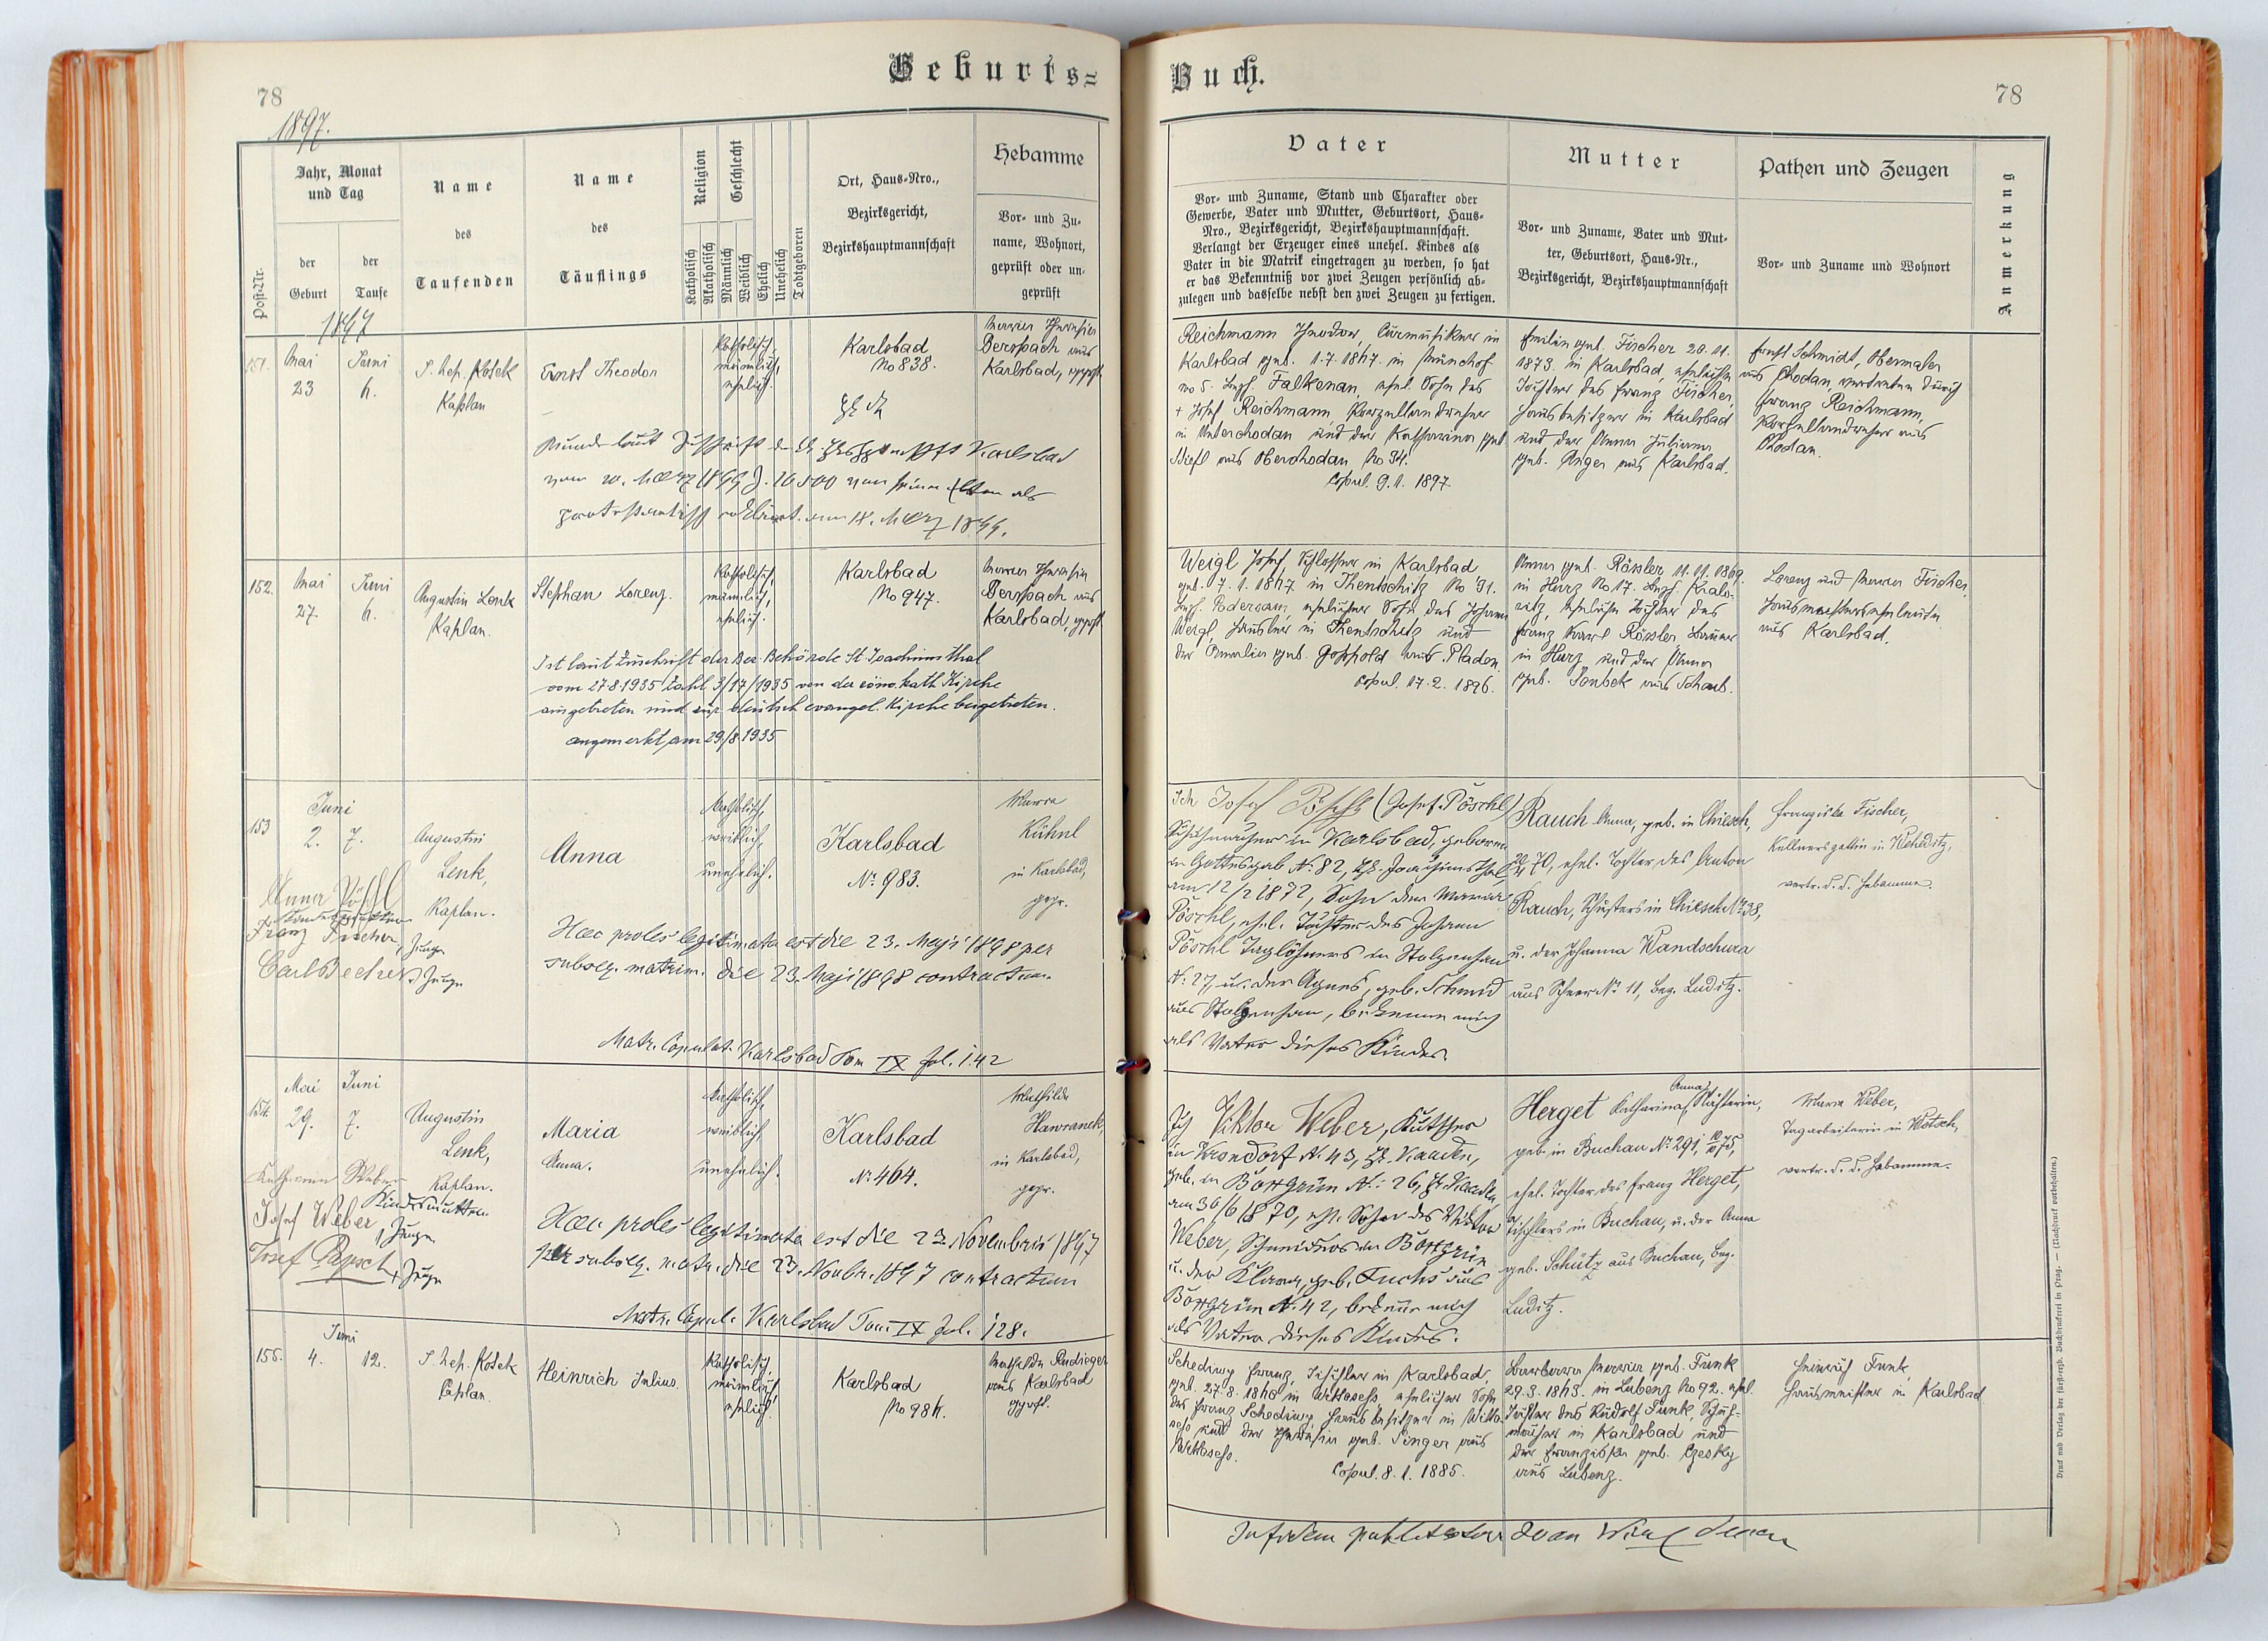 Geburts=
78
1897.
Post-Nr.
Jahr, Monat
und Tag
der
Geburt
der
Taufe
Name
des
Taufenden
Name
des
Täuflings
Religion
Katholisch
Akatholisch
Geschlecht
Männlich
Weiblich
Ehelich
Unehelich
Todtgeboren
Ort, Haus-Nro.,
Bezirksgericht,
Bezirkshauptmannschaft
Hebamme
Vor- und Zu-
name, Wohnort,
geprüft oder un-
geprüft
1897
151.
Mai
23
Juni
6.
J. Nep. Kosek
Kaplan
Ernst Theodor
katholisch,
männlich,
ehelich.
Karlsbad
No 838.
Maria Theresia
Karlsbad, gepft.
Karlsbad
vom
März 1899
von seinen Eltern als
protestantisch erklärt. am 18. März 1899.
152.
Mai
27.
Juni
6.
Augustin Lenk
Kaplan.
Stephan Lorenz.
katholisch,
männlich,
ehelich.
Karlsbad
No 947.
Maria Theresia
Karlsbad, gepft.
Ist laut Zuschrift der Bez. Behörde St. Joachimsthal
vom 27.8.1935 Zahl 3/17/1935 von der röm. kath. Kirche
ausgetreten und zur deutsch evangel. Kirche beigetreten.
angemerkt am 29/8.1935
153
Juni
2. 7.
Augustin
Lenk,
Kaplan.
Anna
katholisch,
weiblich,
unehelich.
Karlsbad
No 983.
Maria
Kühnl
in Karlsbad,
gepr.
Anna Pöschl
Kindesmutter
Franz Fischer, Zeuge
Carl Becher, Zeuge
Haec proles legitimata est die 23. Maji 1898 per
subseq. matrim. die 23. Maji 1898 contractum.
Matr. Copulat. Karlsbad Tom IX fol. 142
154.
Mai Juni
29. 7.
Augustin
Lenk,
Kaplan.
Maria
Anna.
katholisch,
weiblich,
unehelich.
Karlsbad
No 464.
Mathilde
Hawranek,
in Karlsbad,
gepr.
Weber
Kindesmutter
Josef Weber, Zeuge
Josef Zeuge
Haec proles legitimata est die 23. Novembris 1897
per subseq. matr. die 23. Novbr. 1897 contractum
Matr. Copul. Karlsbad Tom. IX fol. 128.
155.
Juni
4. 12.
J. Nep. Kosek
Kaplan.
Heinrich Julius.
katholisch,
männlich,
ehelich.
Karlsbad
No 986.
Mathilde Rudinger
aus Karlsbad
gepft.
Buch.
78
Vater
Vor- und Zuname, Stand und Charakter oder
Gewerbe, Vater und Mutter, Geburtsort, Haus-
Nro., Bezirksgericht, Bezirkshauptmannschaft.
Verlangt der Erzeuger eines unehel. Kindes als
Vater in die Matrik eingetragen zu werden, so hat
er das Bekenntniß vor zwei Zeugen persönlich ab-
zulegen und dasselbe nebst den zwei Zeugen zu fertigen.
Mutter
Vor- und Zuname, Vater und Mut-
ter, Geburtsort, Haus-Nr.,
Bezirksgericht, Bezirkshauptmannschaft
Pathen und Zeugen
Vor- und Zuname und Wohnort
Anmerkung
Reichmann Theodor, Curmusiker in
Karlsbad geb. 1.7.1867. in Münchhof
No 5. Bezh. Falkenau, ehel. Sohn des
+ Josef Reichmann Porzellandreher
in Unterchodau und der Katharina geb.
aus Oberchodau No 34.
Copul. 9.1.1897.
Emilie geb. Fischer 20.11.
1873. in Karlsbad, eheliche
Tochter des Franz Fischer,
Hausbesitzer in Karlsbad
und der Anna Juliana
geb. Unger aus Karlsbad.
Ernst Schmidt, Obermaler
aus Chodau, vertreten durch
Franz Reichmann,
Porzellandreher aus
Chodau.
Weigl Josef, Schlosser in Karlsbad
geb. 7.1.1867. in Thentschitz No 31.
Bezh. Podersam, ehelicher Sohn des Johann
Weigl, Häusler in Thentschitz und
der Amalia geb. Gosshold aus Pladen.
Copul. 17.2.1896.
Anna geb. Rössler 11.11.1869.
in Hurz No 17. Bezh. Kralo-
witz, eheliche Tochter des
Franz Karl Rössler Bauer
in Hurz und der Anna
geb. Soubek aus Schaub.
Lorenz und Maria Fischer,
Hausmeisterseheleute
aus Karlsbad.
Ich Josef Pöschl (Josef Pöschl)
Schuhmacher in Karlsbad, geboren
in Gottesgab No. 82, Bz. Joachimsthal
am 12/2 1872, Sohn der Maria
Pöschl, ehel. Tochter des Johann
Pöschl Taglöhners in Stolzenhan
No. 27 u. der Agnes, geb. Schmid
aus Stolzenhan, bekenne mich
als Vater dieses Kindes.
Rauch Anna, geb. in Chiesch,
70, ehel. Tochter des Anton
Rauch, Schusters in Chiesch No 38,
u. der Johanna Wandschura
aus No 11, Bez. Luditz.
Franziska Fischer,
Kellnersgattin in Weheditz,
vertr. d. d. Hebamme.
Ich Viktor Weber, Kutscher
in Krondorf No. 43, Bz. Kaaden,
geb. in Boxgrün No. 26, Bz. Kaaden
am 30/6 1870, ehl. Sohn des Viktor
Weber, Schneiders in Boxgrün
u. der Klara, geb. Fuchs aus
Boxgrün No. 42, bekenne mich
als Vater dieses Kindes.
Herget Katharina Anna, Nähterin,
geb. in Buchau No 291, 75,
ehel. Tochter des Franz Herget,
Tischlers in Buchau, u. der Anna
geb. Schütz aus Buchau, Bez.
Luditz.
Maria Weber,
Tagarbeiterin in Wotsch,
vertr. d. d. Hebamme.
Schediwy Franz, Tischler in Karlsbad,
geb. 27.8.1860 in Witkosess, ehelicher Sohn
des Franz Schediwy, Hausbesitzer in Witko-
sess und der Theresia geb. Singer aus
Witkosess.
Copul. 8.1.1885.
Barbara Maria geb. Funk
29.3.1863. in Lubenz No 92. ehel.
Tochter des Rudolf Funk, Schuh-
macher in Karlsbad und
der Franziska geb. Czesky
aus Lubenz.
Heinrich Funk,
Hausmeister in Karlsbad
Druck und Verlag der fürsterzb. Buchdruckerei in Prag. — (Nachdruck vorbehalten.)